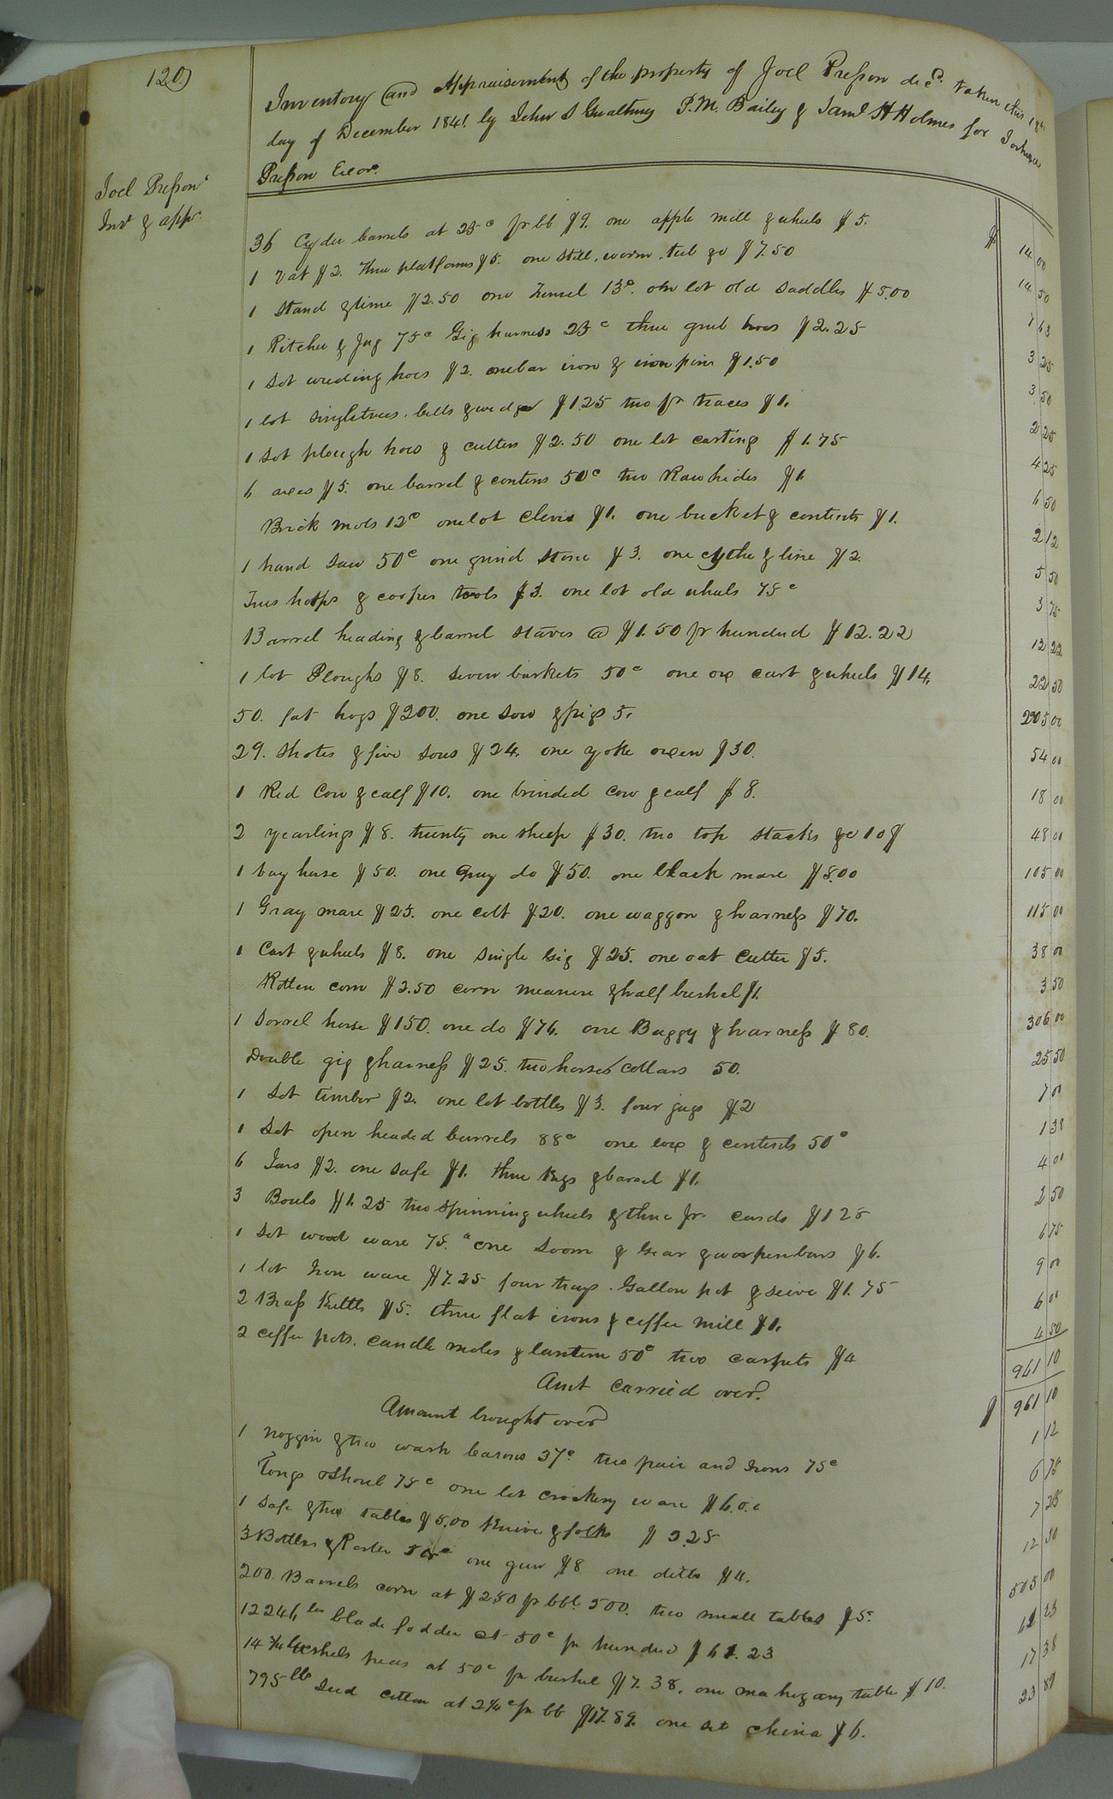 120)
Inventory and Appraisement of the property of Joel Presson dec.d taken this 18th
day of December 1841 by John S Gwaltney P.M. Bailey & Saml H Holmes for
Presson Exor.
Joel Presson's
Invt & appt
36 Cyder barrels at 25c pr bb $9. one apple mill & wheels $5. $ 14 00
1 Vat $2. three platforms $5. one Still, worm, tub &c $7.50 14 50
1 Stand & lime $2.50 one Funnel 13c. one lot old saddles $5.00 7 63
1 Pitcher & Jug 75c Gig harness 25c three grub hoes $2.25 3 25
1 Lot weeding hoes $2. one bar iron & iron pins $1.50 3 50
1 lot Singletrees. bells & wedges $1.25 two pr traces $1. 2 25
1 Lot plough hoes & cutters $2.50 one lot casting $1.75 4 25
6 axes $5. one barrel & contens 50c two Raw hides $1 6 50
Brick mols 12c one lot clevis $1. one bucket & contents $1. 2 12
1 hand saw 50c one grind stone $3. one cythe & line $2. 5 50
Trus hoops & cooper tools $3. one lot old wheels 75c 3 75
Barrel heading & barrel staves @ $1.50 pr hundred $12.22 12 22
1 lot Ploughs $8. seven baskets 50c one ox cart & wheels $14. 22 50
50. fat hogs $200. one sow & pigs 5. 205 00
29. Shotes & five sows $24. one yoke oxen $30. 54 00
1 Red Cow & calf $10. one brinded cow & calf $8. 18 00
2 yearlings $8. twenty one sheep $30. two top stacks &c 10$ 48 00
1 bay horse $50. one Gray do $50. one black mare $5.00 105 00
1 Gray mare $25. one colt $20. one waggon & harness $70. 115 00
1 Cart & wheels $8. one single Gig $25. one oat Cutter $5. 38 00
Rotten corn $2.50 corn measure & half bushel $1. 3 50
1 Sorrel horse $150. one do $76. one Buggy & harness $80. 306 00
Double gig & harness $25. two horses collars 50. 25 50
1 Lot timber $2. one lot bottles $3. four jugs $2 7 00
1 Lot open headed barrels 88c one box & contents 50c 1 38
6 Jars $2. one safe $1. three kegs & barrel $1. 4 00
3 Bowls $1.25 two spinning wheels & three pr cards $1 25 2 50
1 Lot wood ware 75.c one Loom & Gear & warpenbars $6. 6 75
1 lot Iron ware $7.25 four trays. Gallon pot & seive $1.75 9 00
2 Brass kettls $5. three flat irons & coffee mill $1. 6 00
2 coffee pots. candle moles & lantern 50c two carpets $4 4 50
961 10
Amt carried over.
Amount brought over $ 961 10
1 noggin & two wash basons 37c. two pair and Irons 75c 1 12
Tongs & Shovel 75c one lot crockery ware $6.00 6 75
1 Safe & two tables $5.00 Knives & forks $2.25 7 25
3 Bottles & Porter 50c one gun $8 one ditto $4. 12 50
200 Barrels corn at $250 pr bbl. 500. two small tables $5. 505 00
12246 lbs blade fodder at 50c pr hundred $61.23 61 23
14 3/4 bushels peas at 50c pr bushel $7.38. one mahogany table $10. 17 38
795 lbs Seed cotton at 2 1/4c pr bb $17.89. one set china $6. 23 89